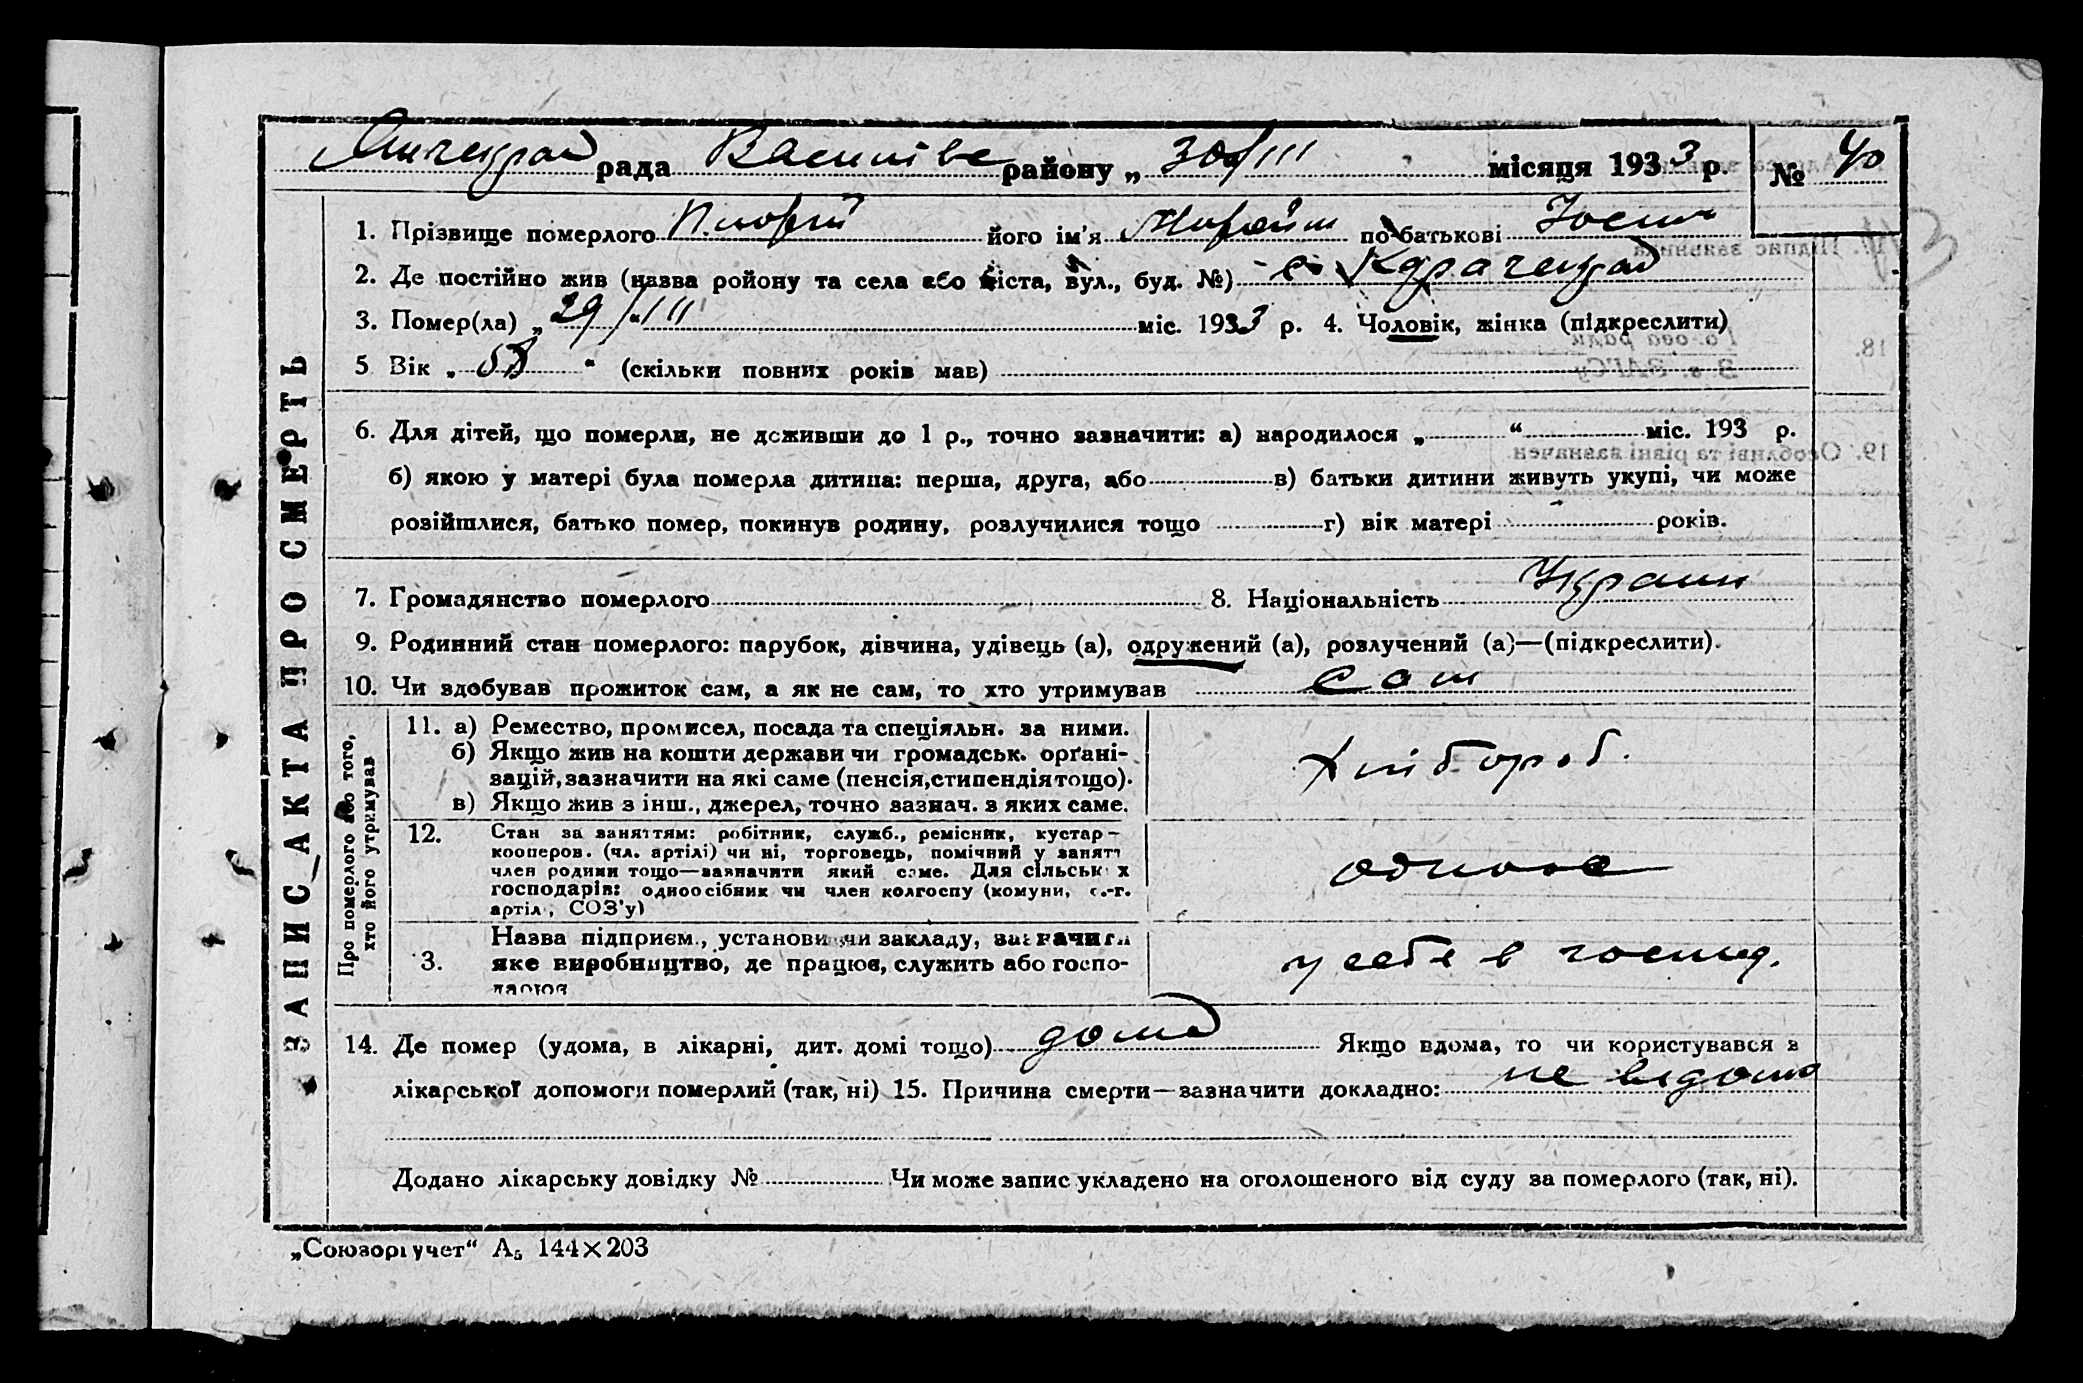 рада Василівс району „ 30/III місяця 1933 р. № 40
1. Прізвище померлого його ім'я по батькові Йосип
2. Де постійно жив (назва ройону та села або міста, вул., буд. №) с.
3. Помер(ла) „ 29/III " міс. 1933 р. 4. Чоловік, жінка (підкреслити)
5 Вік „ “ (скільки повних років мав)
6. Для дітей, що померли, не доживши до 1 р., точно зазначити: а) народилося „ “ міс. 193 р.
б) якою у матері була померла дитина: перша, друга, або в) батьки дитини живуть укупі, чи може
розійшлися, батько помер, покинув родину, розлучилися тощо г) вік матері років.
7. Громадянство померлого 8. Національність Україн
9. Родинний стан померлого: парубок, дівчина, удівець (а), одружений (а), розлучений (а)—(підкреслити).
10. Чи здобував прожиток сам, а як не сам, то хто утримував сам
ЗАПИС АКТА ПРО СМЕРТЬ
Про померлого або того,
хто його утримував
11. а) Ремество, промисел, посада та спеціяльн. за ними.
б) Якщо жив на кошти держави чи громадськ. орґані-
зацій, зазначити на які саме (пенсія, стипендія тощо).
в) Якщо жив з інш., джерел, точно зазнач. з яких саме.
Хлібороб.
12. Стан за заняттям: робітник, служб., ремісник, кустар —
кооперов. (чл. артілі) чи ні, торговець, помічний у занятт
член родини тощо—зазначити який саме. Для сільських
господарів: одноосібник чи член колгоспу (комуни, с.-г.
артіл , СОЗ'у)
однос
Назва підприєм., установи чи закладу, зазначити
3. яке виробництво, де працює, служить або госпо-
дарює
у себе в господ.
14. Де помер (удома, в лікарні, дит. домі тощо) дома Якщо вдома, то чи користувався з
лікарської допомоги померлий (так, ні) 15. Причина смерти—зазначити докладно: не відомо
Додано лікарську довідку № Чи може запис укладено на оголошеного від суду за померлого (так, ні).
„Союзоргучет“ А₅ 144×203